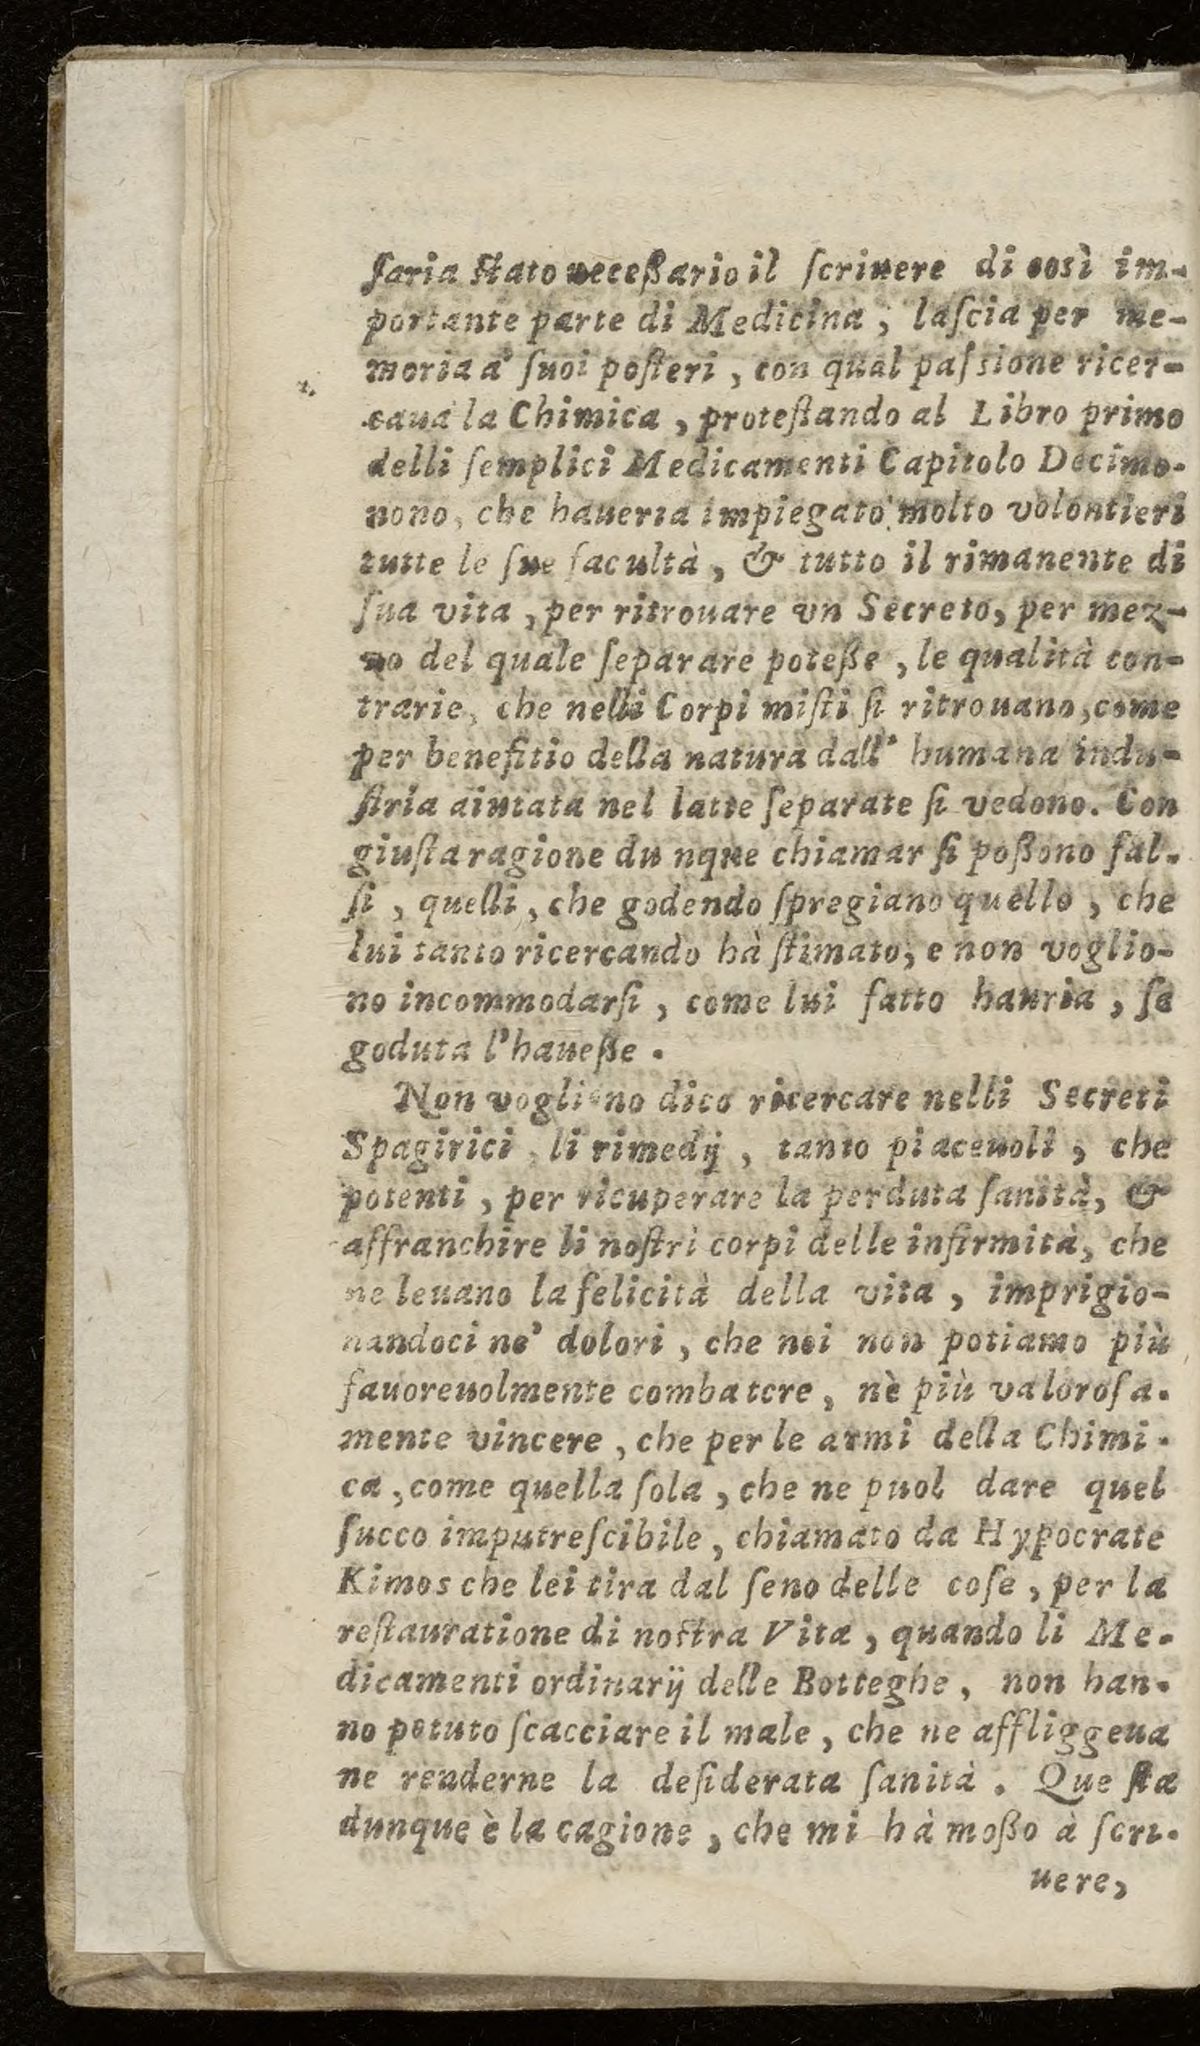 ſaria ſtato neceßario il ſcriuere di così im-
portante parte di Medicina, laſcia per me-
moria a' ſuoi poſteri, con qual paſsione ricer-
caua la Chimica, proteſtando al Libro primo
delli ſemplici Medicamenti Capitolo Decimo-
nono, che haueria impiegato molto volontieri
tutte le ſue facultà, & tutto il rimanente di
ſua vita, per ritrouare vn Secreto, per mez-
no del quale ſeparare poteße, le qualità con-
trarie, che nelli Corpi miſti ſi ritrouano, come
per benefitio della natura dall' humana indu-
ſtria aiutata nel latte ſeparate ſi vedono. Con
giuſta ragione du nque chiamar ſi poßono fal-
ſi, quelli, che godendo ſpregiano quello, che
lui tanto ricercando hà ſtimato, e non voglio-
no incommodarſi, come lui fatto hauria, ſe
goduta l'haueße.
Non vogliono dico ricercare nelli Secreti
Spagirici, li rimedij, tanto piaceuoli, che
potenti, per ricuperare la perduta ſanità, &
affranchire li noſtri corpi delle infirmità, che
ne leuano la felicità della vita, imprigio-
nandoci ne' dolori, che noi non potiamo più
fauoreuolmente combatere, nè più valoroſa-
mente vincere, che per le armi della Chimi-
ca, come quella ſola, che ne puol dare quel
ſucco imputreſcibile, chiamato da Hypocrate
Kimos che lei tira dal ſeno delle coſe, per la
reſtauratione di noſtra Vita, quando li Me-
dicamenti ordinarij delle Botteghe, non han-
no potuto ſcacciare il male, che ne affliggeua
ne renderne la deſiderata ſanità. Que ſta
dunque è la cagione, che mi hà moßo à ſcri-
uere,